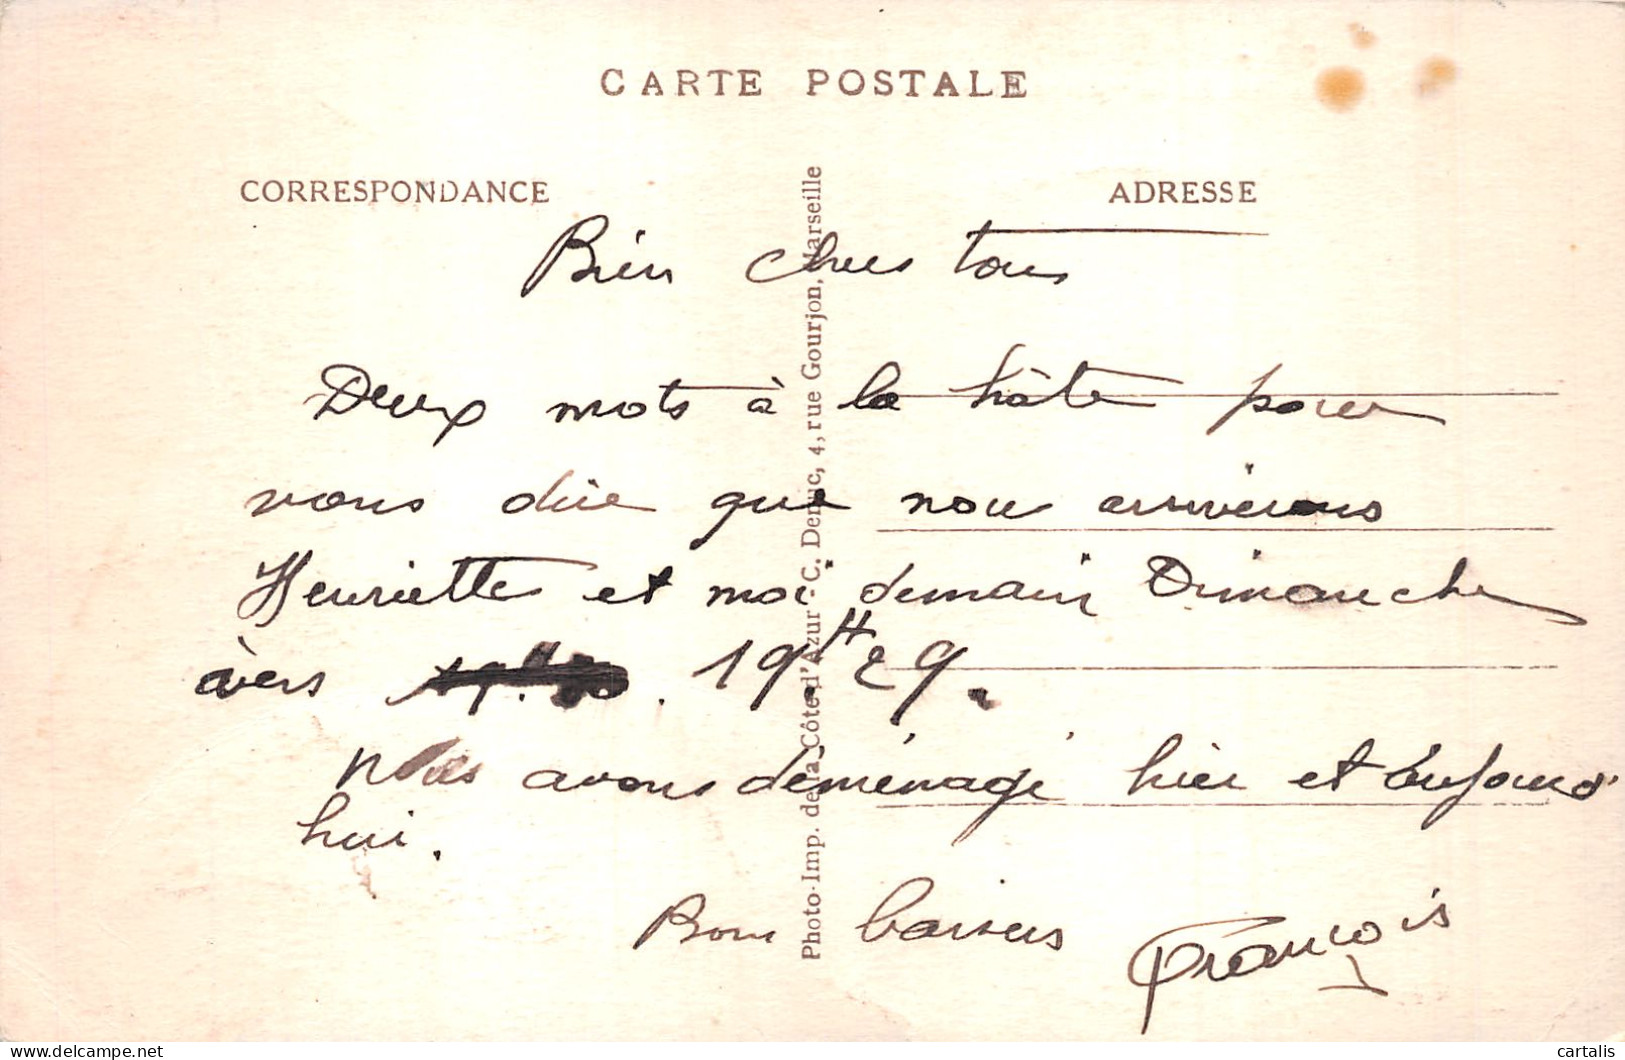 CARTE POSTALE
CORRESPONDANCE
ADRESSE
Bien chers tous
Deux mots à la hâte pour
vous dire que nous arriverons
Henriette et moi demain Dimanche
vers 19.H 29.
Nous avons déménagé hier et aujourd'
hui.
Bons baisers François
Photo-Imp. de la Côte d'Azur - C. Demuc, 4, rue Gourjon, Marseille
delcampe.net
cartalis